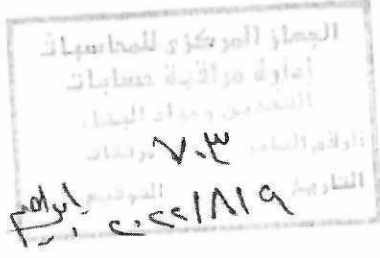 الجهاز المركزى للمحاسبات
إدارة مراقبة حسابات
التعدين ومواد البناء
الرقم العام ٧٠٣ مرفقات
التاريخ ٢٠٢٢/٨/٩ التوقيع ابراهيم